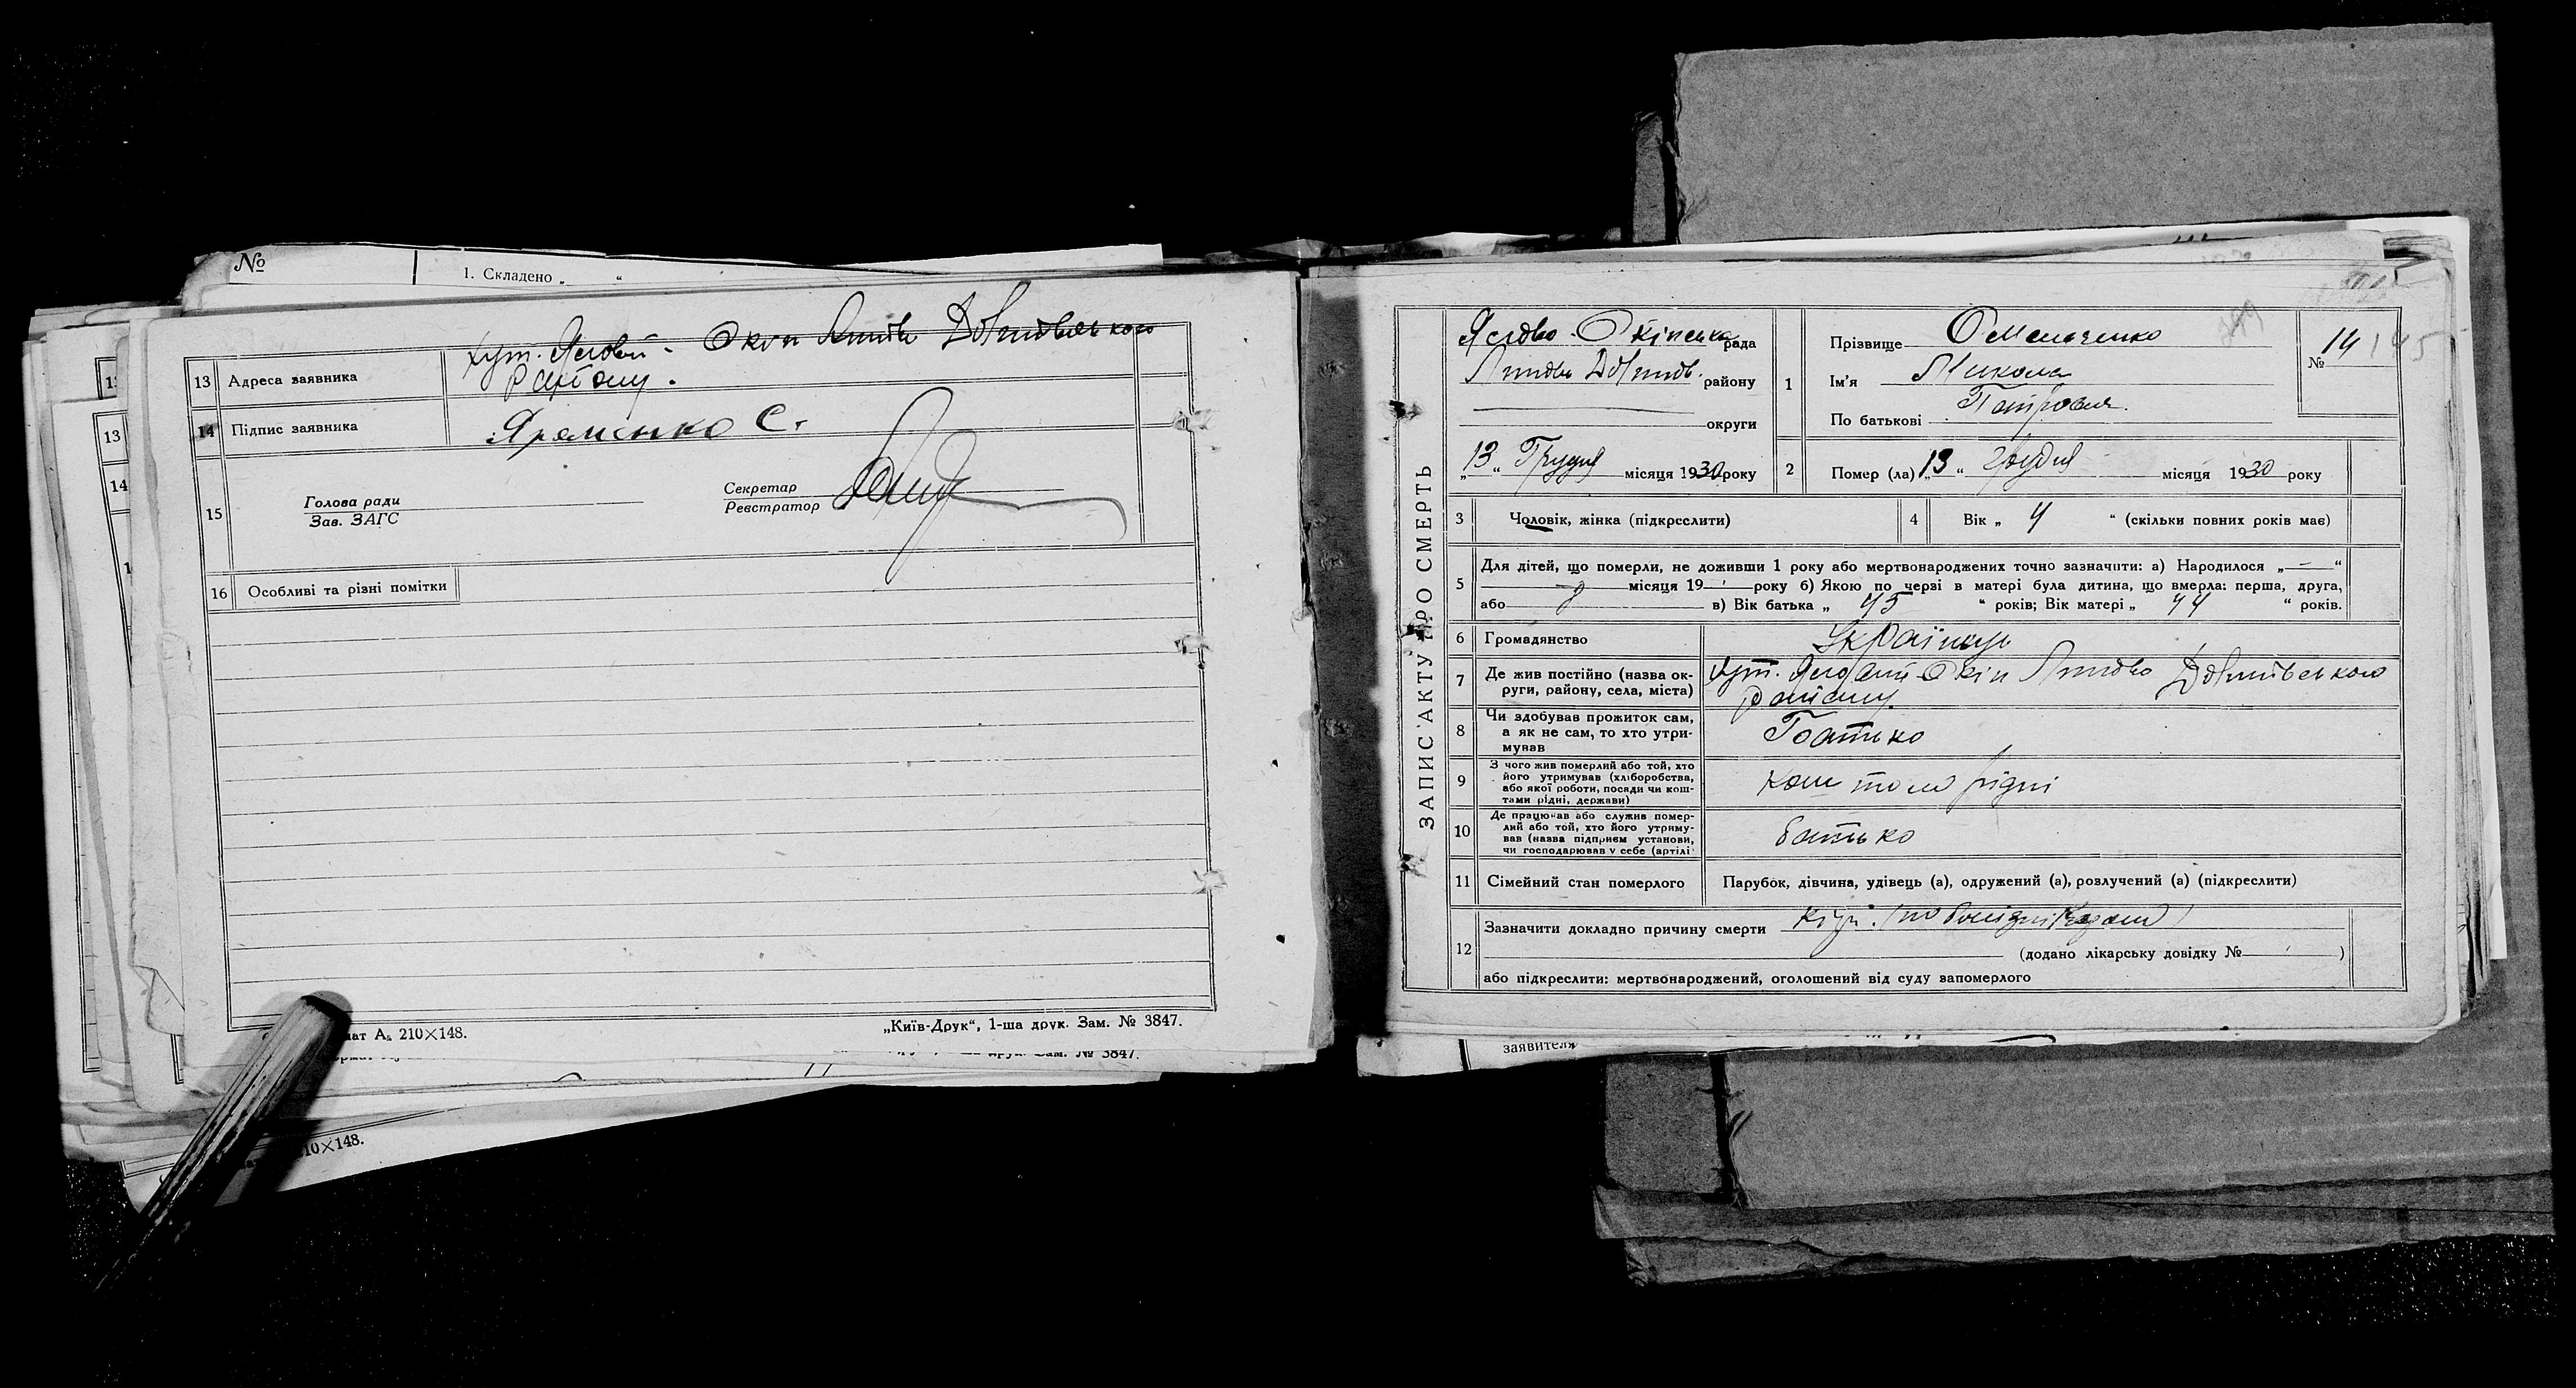 №
1. Складено „ “
хут. Яловий - Окіп Липово Долинського
13 Адреса заявника
району.
14 Підпис заявника
Яременко С.
15
Голова ради
Зав. ЗАГС
Секретар
Реєстратор
16 Особливі та різні помітки
мат А₅ 210×148.
„Київ-Друк“, 1-ша друк. Зам. № 3847.
Зам. № 3847.
10×148.
13
14
ЗАПИС АКТУ ПРО СМЕРТЬ
Ялово-Окіпська рада
району
округи
„13“ Грудня місяця 1930 року
1
Прізвище Омельченко
Ім’я Микола
По батькові Петрович.
№ 14 145
2 Помер (ла) „13“ грудня місяця 1930 року
3 Чоловік, жінка (підкреслити)
4 Вік „ 4 “ (скільки повних років має)
5 Для дітей, що померли, не доживши 1 року або мертвонароджених точно зазначити: а) Народилося „—“
місяця 19 року б) Якою по черзі в матері була дитина, що вмерла: перша, друга,
або в) Вік батька „ 45 “ років; Вік матері „ 44 “ років.
6 Громадянство Українець
7 Де жив постійно (назва ок-
руги, району, села, міста)
хут. Яловий-Окіп Липово Долинського
району
8 Чи здобував прожиток сам,
а як не сам, то хто утри-
мував
Батько
9 З чого жив померлий або той, хто
його утримував (хліборобства,
або якої роботи, посади чи кош-
тами рідні, держави)
коштом рідні
10 Де працював або служив помер-
лий або той, хто його утриму-
вав (назва підприєм установи,
чи господарював у себе (артілі
батько
11 Сімейний стан померлого Парубок, дівчина, удівець (а), одружений (а), розлучений (а) (підкреслити)
12 Зазначити докладно причину смерти Кір.
(додано лікарську довідку № )
або підкреслити: мертвонароджений, оголошений від суду запомерлого
заявителя